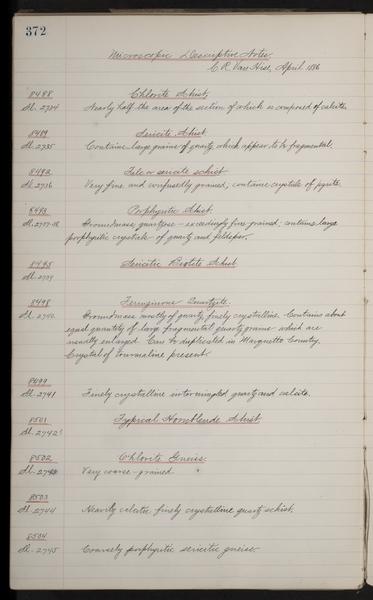 372
Microscopic Descriptive Notes.
C. R. Van Hise, April 1886
8488 Chlorite Schist
Sl. 2734 Nearly half the area of the section of which is composed of calcite.
8489 Sericite Schist
Sl. 2735 Contains large grains of quartz which appear to be fragmental.
8492 Talc or sericite schist
Sl. 2736 Very fine and confusedly grained, contains crystals of pyrite.
8493 Porphyritic Schist
Sl. 2737-38 Groundmass quartzose - exceedingly fine grained, contains large
porphyritic crystals of quartz and feldspar.
8495 Sericitic Biotite Schist
Sl. 2739
8498 Ferruginous Quartzite.
Sl. 2740. Groundmass mostly of quartz, finely crystalline. Contains about
equal quantity of large fragmental quartz grains which are
neatly enlarged. Can be duplicated in Marquette Country.
Crystal of tourmaline present.
8499
Sl. 2741 Finely crystalline intermingled quartz and calcite.
8501 Typical Hornblende Schist
Sl. 2742
8502 Chlorite Gneiss.
Sl. 2743 Very coarse-grained
8503
Sl. 2744 Heavily calcitic finely crystalline quartz schist.
8504
Sl. 2745 Coarsely porphyritic sericitic gneiss.